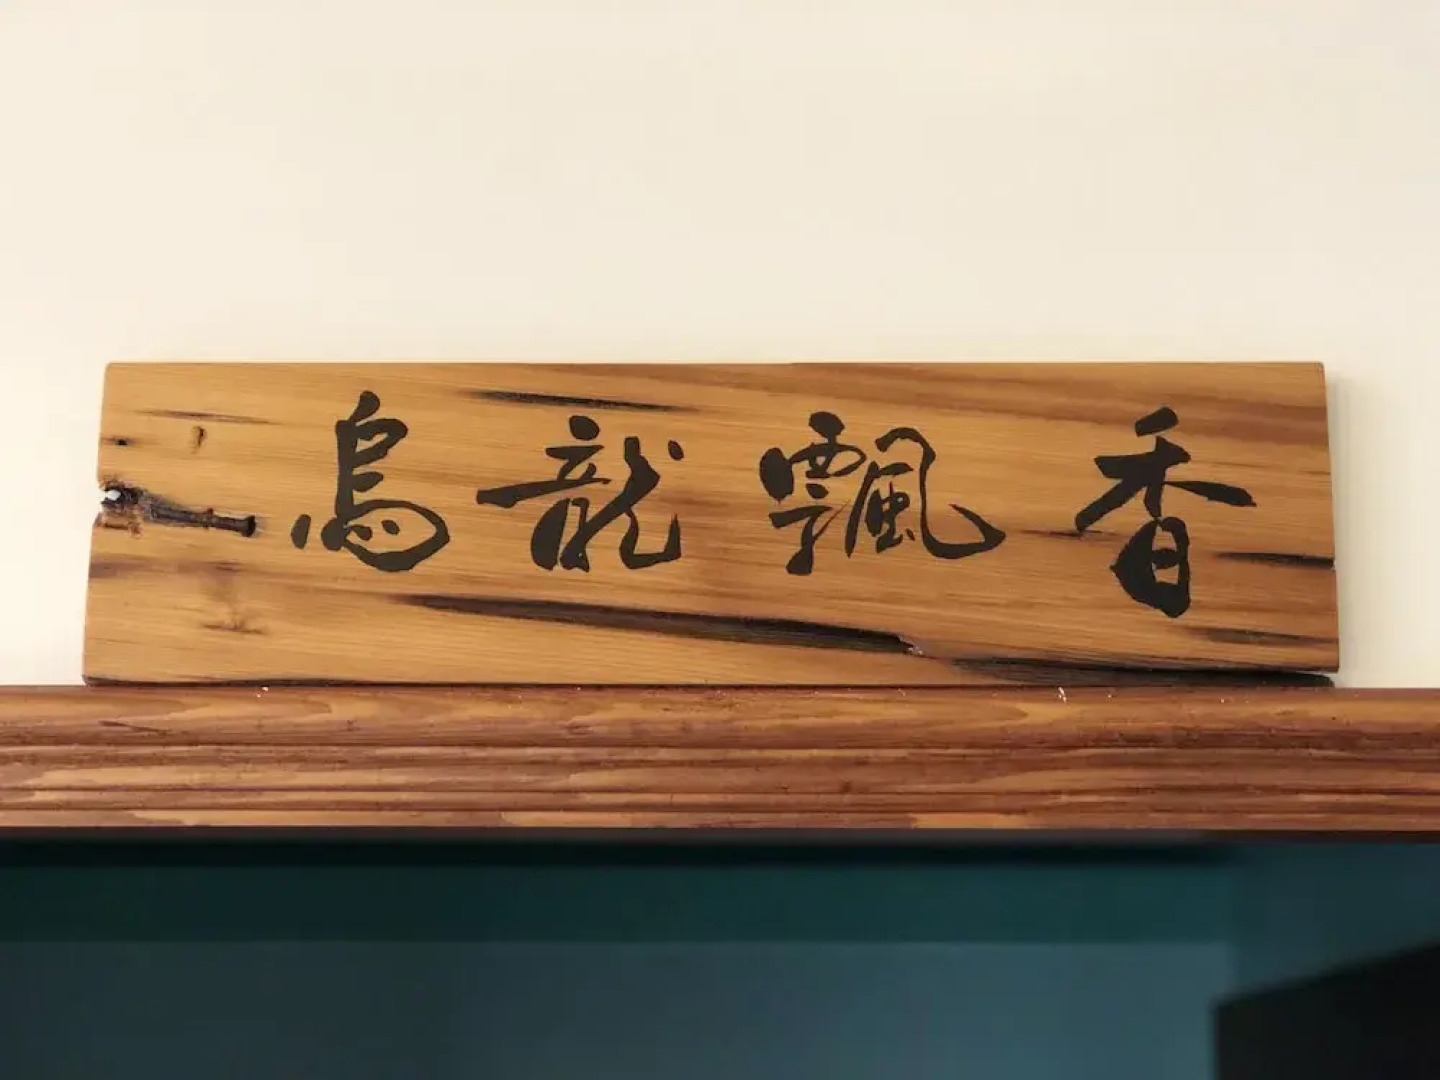 烏龍飄香